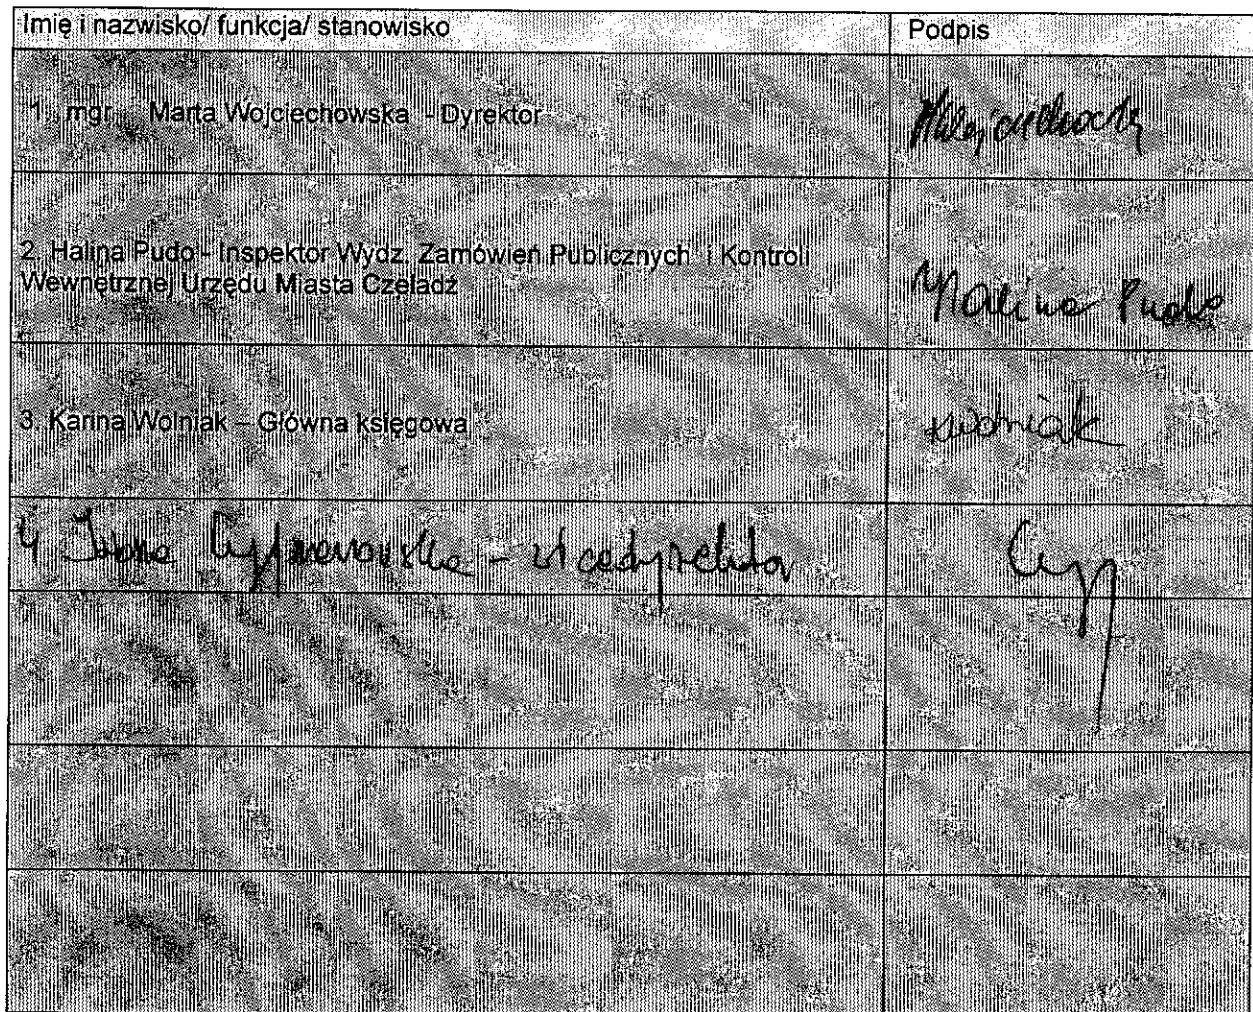 Imię i nazwisko/ funkcja/ stanowisko
Podpis
1. mgr Marta Wojciechowska - Dyrektor
2. Halina Pudo - Inspektor Wydz. Zamówień Publicznych i Kontroli
Wewnętrznej Urzędu Miasta Czeladź
Halina Pudo
3. Karina Wolniak – Główna księgowa
KWolniak
4 - wicedyrektor